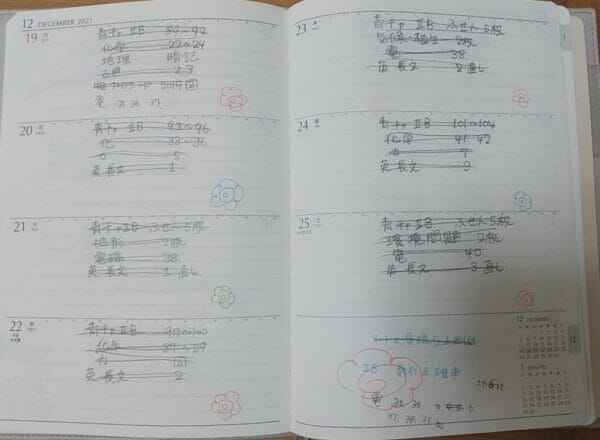 12 DECEMBER 2021
19 日
青チャ ⅡB 89~92
化学 22~24
地理 暗記
古典 23
2019
電 35. 36. 37.
20 月
青チャ ⅡB 93~96
化 33~36
力 5
英長文 1
21 火
青チャⅡB ふせん5枚
地形 2枚
電磁 38
英長文 1直し
22 水
青チャⅡB 97~100
化学 37~39
力 6
英長文 2
23 木
青チャ ⅡB ふせん5枚
気候・植生 2枚
電 38
英長文 2直し
24 金
青チャ ⅡB 101~104
化学 41 42
力 7
英長文 3
25 土
青チャ ⅡB ふせん5枚
環境問題 2枚
電 40
英長文 3直し
ⅡB 数列&確率
電 35. 36.
37. 38. 19
12 DECEMBER
1 JANUARY
12